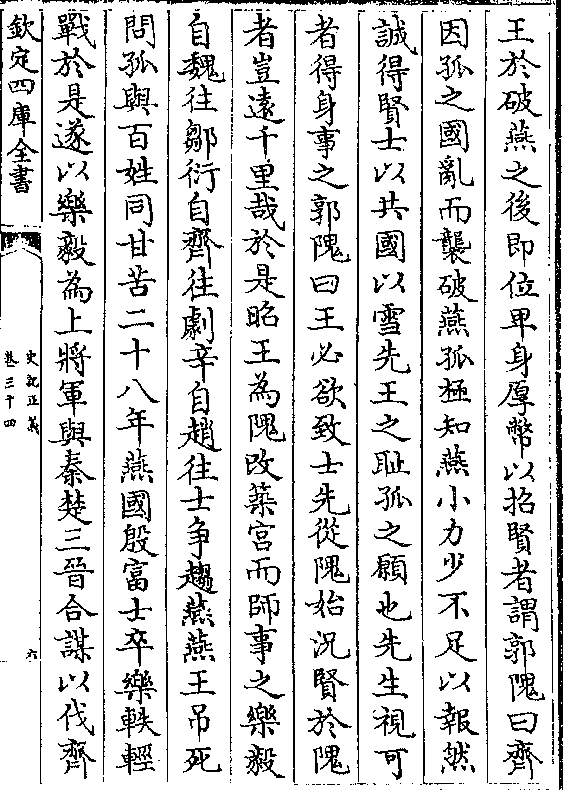 王於破燕之後即位卑身厚幣以招賢者謂郭隗曰齊
因孤之國亂而襲破燕孤極知燕小力少不足以報然
誠得賢士以共國以雪先王之耻孤之願也先生視可
者得身事之郭隗曰王必欲致士先從隗始況賢於隗
者豈遠千里哉於是昭王為隗改築宫而師事之樂毅
自魏往鄒衍自齊往劇辛自趙往士争趨燕燕王吊死
問孤與百姓同甘苦二十八年燕國殷富士卒樂軼輕
戰於是遂以樂毅為上將軍與秦楚三晉合謀以伐齊
欽定四庫全書
史記正義
卷三十四
六